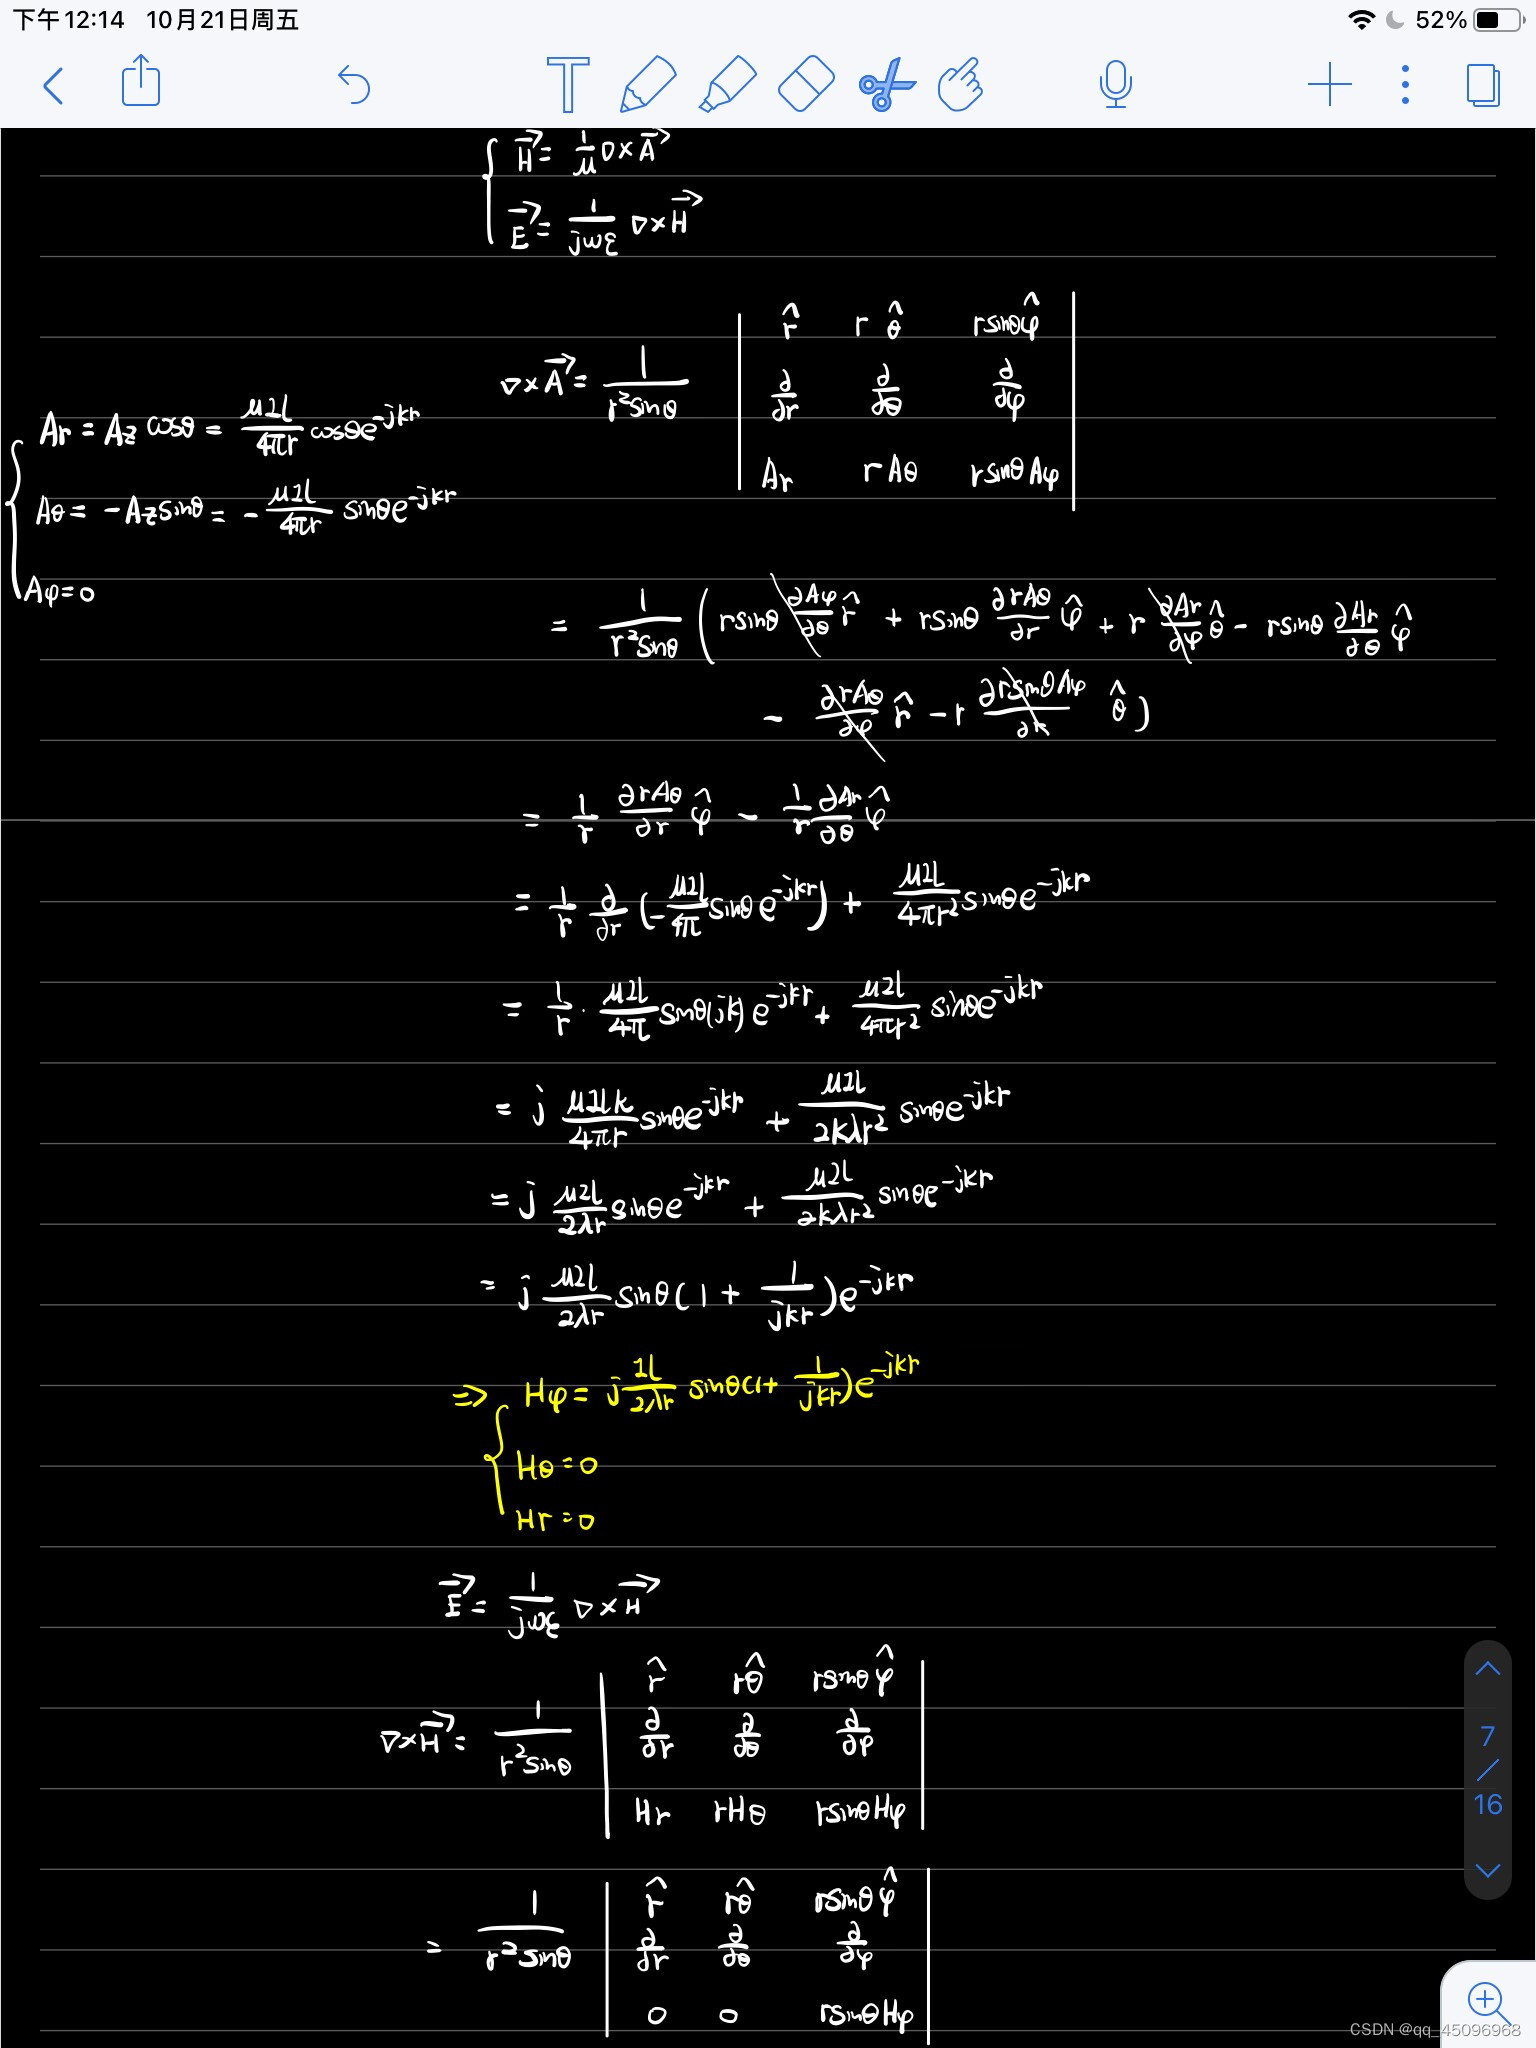 下午12:14 10月21日周五 52%
{ H⃗ = 1/μ ∇×A⃗
E⃗ = 1/(jωε) ∇×H⃗
∇×A⃗ = 1/(r²sinθ) | r̂ rθ̂ rsinθφ̂ |
| ∂/∂r ∂/∂θ ∂/∂φ |
| Ar rAθ rsinθAφ |
{ Ar = Az cosθ = μIl/(4πr) cosθe^(-jkr)
Aθ = -Az sinθ = - μIl/(4πr) sinθe^(-jkr)
Aφ = 0
= 1/(r²sinθ) ( rsinθ ∂Aφ/∂θ r̂ + rsinθ ∂rAθ/∂r φ̂ + r ∂Ar/∂φ θ̂ - rsinθ ∂Ar/∂θ φ̂
- ∂rAθ/∂φ r̂ - r ∂rsinθAφ/∂r θ̂ )
= 1/r ∂rAθ/∂r φ̂ - 1/r ∂Ar/∂θ φ̂
= 1/r ∂/∂r (-μIl/(4π) sinθe^(-jkr)) + μIl/(4πr²) sinθe^(-jkr)
= 1/r · μIl/(4π) sinθ(jk)e^(-jkr) + μIl/(4πr²) sinθe^(-jkr)
= j μIlk/(4πr) sinθe^(-jkr) + μIl/(2kλr²) sinθe^(-jkr)
= j μIl/(2λr) sinθe^(-jkr) + μIl/(2kλr²) sinθe^(-jkr)
= j μIl/(2λr) sinθ(1 + 1/(jkr))e^(-jkr)
=> { Hφ = j Il/(2λr) sinθ(1 + 1/(jkr))e^(-jkr)
Hθ = 0
Hr = 0
E⃗ = 1/(jωε) ∇×H⃗
∇×H⃗ = 1/(r²sinθ) | r̂ rθ̂ rsinθφ̂ |
| ∂/∂r ∂/∂θ ∂/∂φ |
| Hr rHθ rsinθHφ |
= 1/(r²sinθ) | r̂ rθ̂ rsinθφ̂ |
| ∂/∂r ∂/∂θ ∂/∂φ |
| 0 0 rsinθHφ |
7
/
16
CSDN @qq_45096968